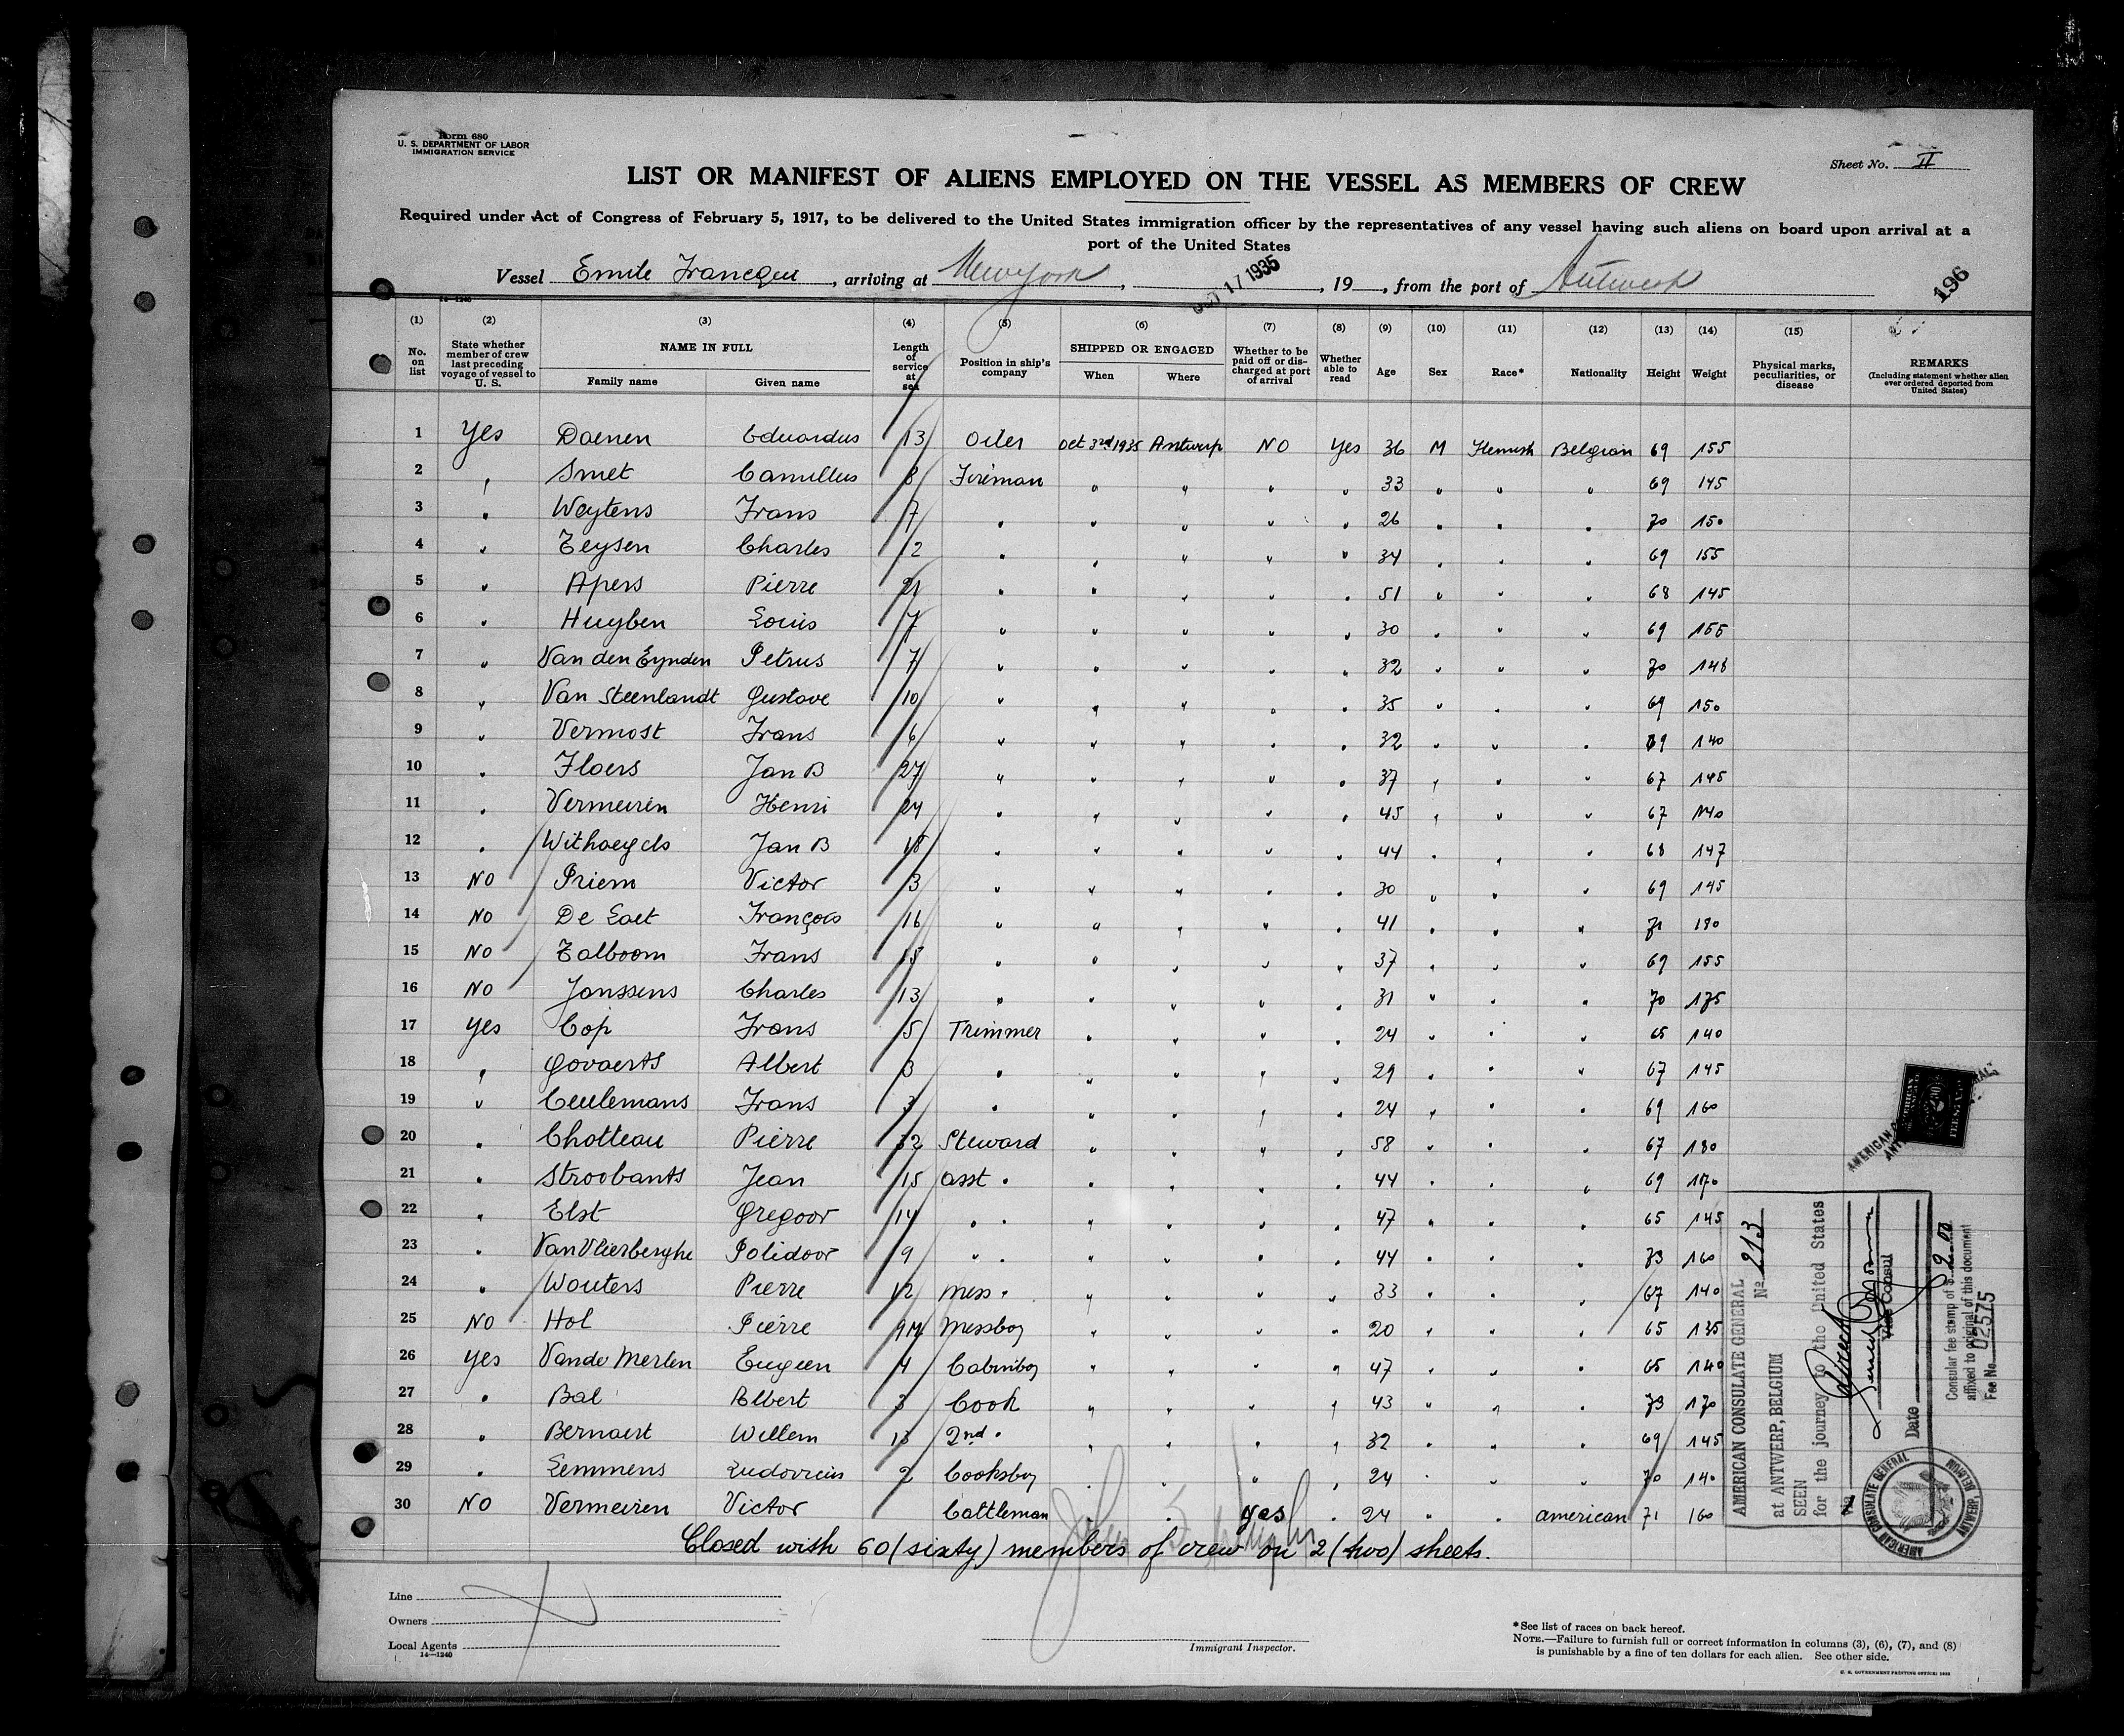 Form 680
U. S. DEPARTMENT OF LABOR
IMMIGRATION SERVICE
Sheet No. II
LIST OR MANIFEST OF ALIENS EMPLOYED ON THE VESSEL AS MEMBERS OF CREW
Required under Act of Congress of February 5, 1917, to be delivered to the United States immigration officer by the representatives of any vessel having such aliens on board upon arrival at a
port of the United States
Vessel Emile Francqui, arriving at New York, OCT 17 1935, 19, from the port of Antwerp
196
14—1240
(1) (2) (3) (4) (5) (6) (7) (8) (9) (10) (11) (12) (13) (14) (15)
No. on list
State whether member of crew last preceding voyage of vessel to U. S.
NAME IN FULL
Family name Given name
Length of service at sea
Position in ship's company
SHIPPED OR ENGAGED
When Where
Whether to be paid off or discharged at port of arrival
Whether able to read
Age Sex Race* Nationality Height Weight
Physical marks, peculiarities, or disease
REMARKS
(Including statement whether alien ever ordered deported from United States)
1 Yes Daenen Eduardus 13 Oiler Oct 3rd 1935 Antwerp NO Yes 36 M Flemish Belgian 69 155
2 " Smet Camillus 8 Fireman " " " " 33 " " " 69 145
3 " Weytens Frans 7 " " " " " 26 " " " 70 150
4 " Teysen Charles 2 " " " " " 34 " " " 69 155
5 " Apers Pierre 21 " " " " " 51 " " " 68 145
6 " Huyben Louis 7 " " " " " 30 " " " 69 155
7 " Van den Eynden Petrus 7 " " " " " 32 " " " 70 148
8 " Van Steenlandt Gustave 10 " " " " " 35 " " " 69 150
9 " Vermost Frans 6 " " " " " 32 " " " 69 140
10 " Floers Jan B 27 " " " " " 37 " " " 67 145
11 " Vermeiren Henri 24 " " " " " 45 " " " 67 140
12 " Withaegels Jan B 18 " " " " " 44 " " " 68 147
13 NO Priem Victor 3 " " " " " 30 " " " 69 145
14 NO De Laet François 16 " " " " " 41 " " " 71 190
15 NO Talboom Frans 15 " " " " " 37 " " " 69 155
16 NO Janssens Charles 13 " " " " " 31 " " " 70 175
17 Yes Cop Frans 5 Trimmer " " " " 24 " " " 65 140
18 " Govaerts Albert 3 " " " " " 29 " " " 67 145
19 " Ceulemans Frans 3 " " " " " 24 " " " 69 160
20 " Chotteau Pierre 32 Steward " " " " 58 " " " 67 180
21 " Stroobants Jean 15 asst " " " " " 44 " " " 69 170
22 " Elst Gregoor 14 " " " " " " 47 " " " 65 145
23 " Van Vlierberghe Polidoor 9 " " " " " " 44 " " " 73 160
24 " Wouters Pierre 12 Mess " " " " " 33 " " " 67 140
25 NO Hol Pierre 9M Messboy " " " " 20 " " " 65 135
26 Yes Vande Merlen Eugeen 4 Cabinboy " " " 47 " " " 65 140
27 " Bal Albert 3 Cook " " " " 43 " " " 73 170
28 " Bernaert Willem 13 2nd " " " " " 32 " " " 69 145
29 " Lemmens Ludovicus 2 Cooksboy " " " " 24 " " " 70 140
30 NO Vermeiren Victor Cattleman " " yes " 24 " " american 71 160
Closed with 60 (sixty) members of crew on 2 (two) sheets.
AMERICAN CONSULATE GENERAL
No 213
at ANTWERP, BELGIUM
SEEN
for the journey to the United States
Vice Consul
Date
Consular fee stamp of $ 2.00
affixed to original of this document
Fee No. 02575
AMERICAN CONSULATE GENERAL ANTWERP, BELGIUM
Line
Owners
Local Agents
14—1240
Immigrant Inspector.
*See list of races on back hereof.
NOTE.—Failure to furnish full or correct information in columns (3), (6), (7), and (8)
is punishable by a fine of ten dollars for each alien. See other side.